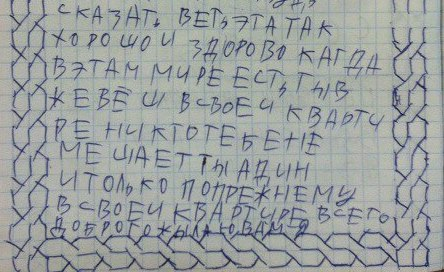 СКАЗАТЬ ВЕТЬ ЭТА ТАК
ХОРОШО И ЗДОРОВО КАГДА
В ЭТАМ МИРЕ ЕСТЬ ТЫ
ЖЕВЁШ В СВОЕЙ КВАРТИ
РЕ НИКТО ТЕБЕ НЕ
МЕШАЕТ ТЫ АДИН
И ТОЛЬКО ПОПРЕЖНЕМУ
В СВОЕЙ КВАРТИРЕ ВСЕГО
ДОБРОГО ЖЫЛАЮ ВАМ Я